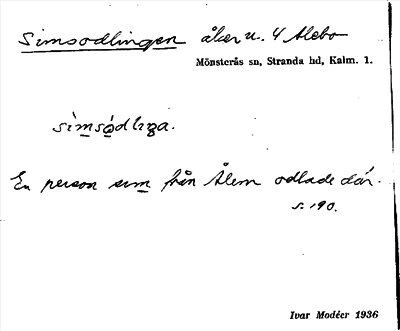 Simsodlingen åker u. 4 Alebo
Mönsterås sn, Stranda hd, Kalm. l.
En person som från Ålem odlade där.
s. 190.
Ivar Modéer 1936